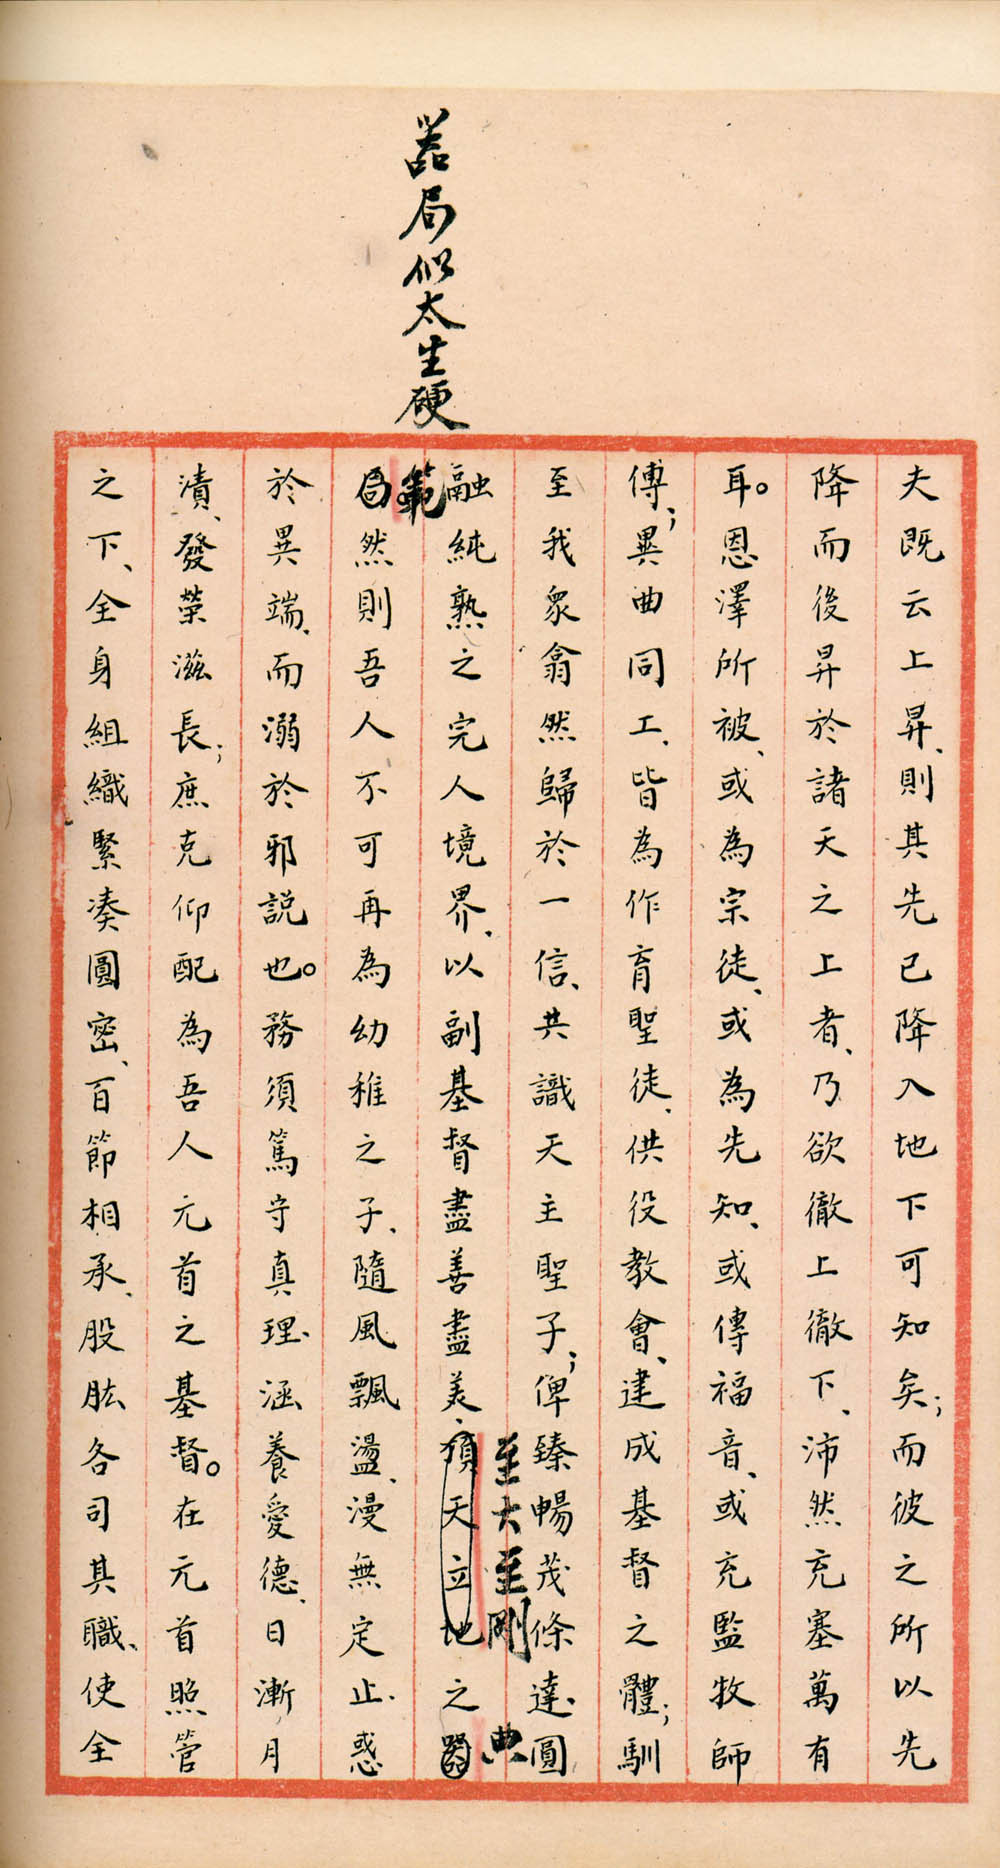 器局似太生硬
夫既云上昇、則其先已降入地下可知矣；而彼之所以先
降而後昇於諸天之上者、乃欲徹上徹下、沛然充塞萬有
耳。恩澤所被、或為宗徒、或為先知、或傳福音、或充監牧師
傅；異曲同工、皆為作育聖徒、供役教會、建成基督之體；馴
至我眾翕然歸於一信、共識天主聖子；俾臻暢茂條達、圓
至大至剛 典
融純熟之完人境界、以副基督盡善盡美、頂天立地之器
範
局然則吾人不可再為幼稚之子、隨風飄盪、漫無定止、惑
於異端、而溺於邪說也。務須篤守真理、涵養愛德、日漸月
漬、發榮滋長；庶克仰配為吾人元首之基督。在元首照管
之下、全身組織緊湊圓密、百節相承、股肱各司其職、使全